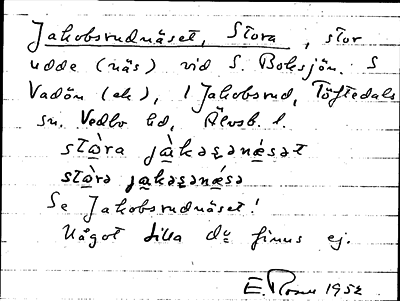 Jakobsrudnäset, Stora, stor
udde (näs) vid S. Boksjön. S
Vadön (ek), 1 Jakobsrud, Töftedals
sn. Vedbo hd, Älvsb. l.
stɷ̀ra jàkəsənǽsət
stɷ̀rə jakəsənǽsə
Se Jakobsrudnäset!
Något lilla du finns ej.
E. Rosn 1952